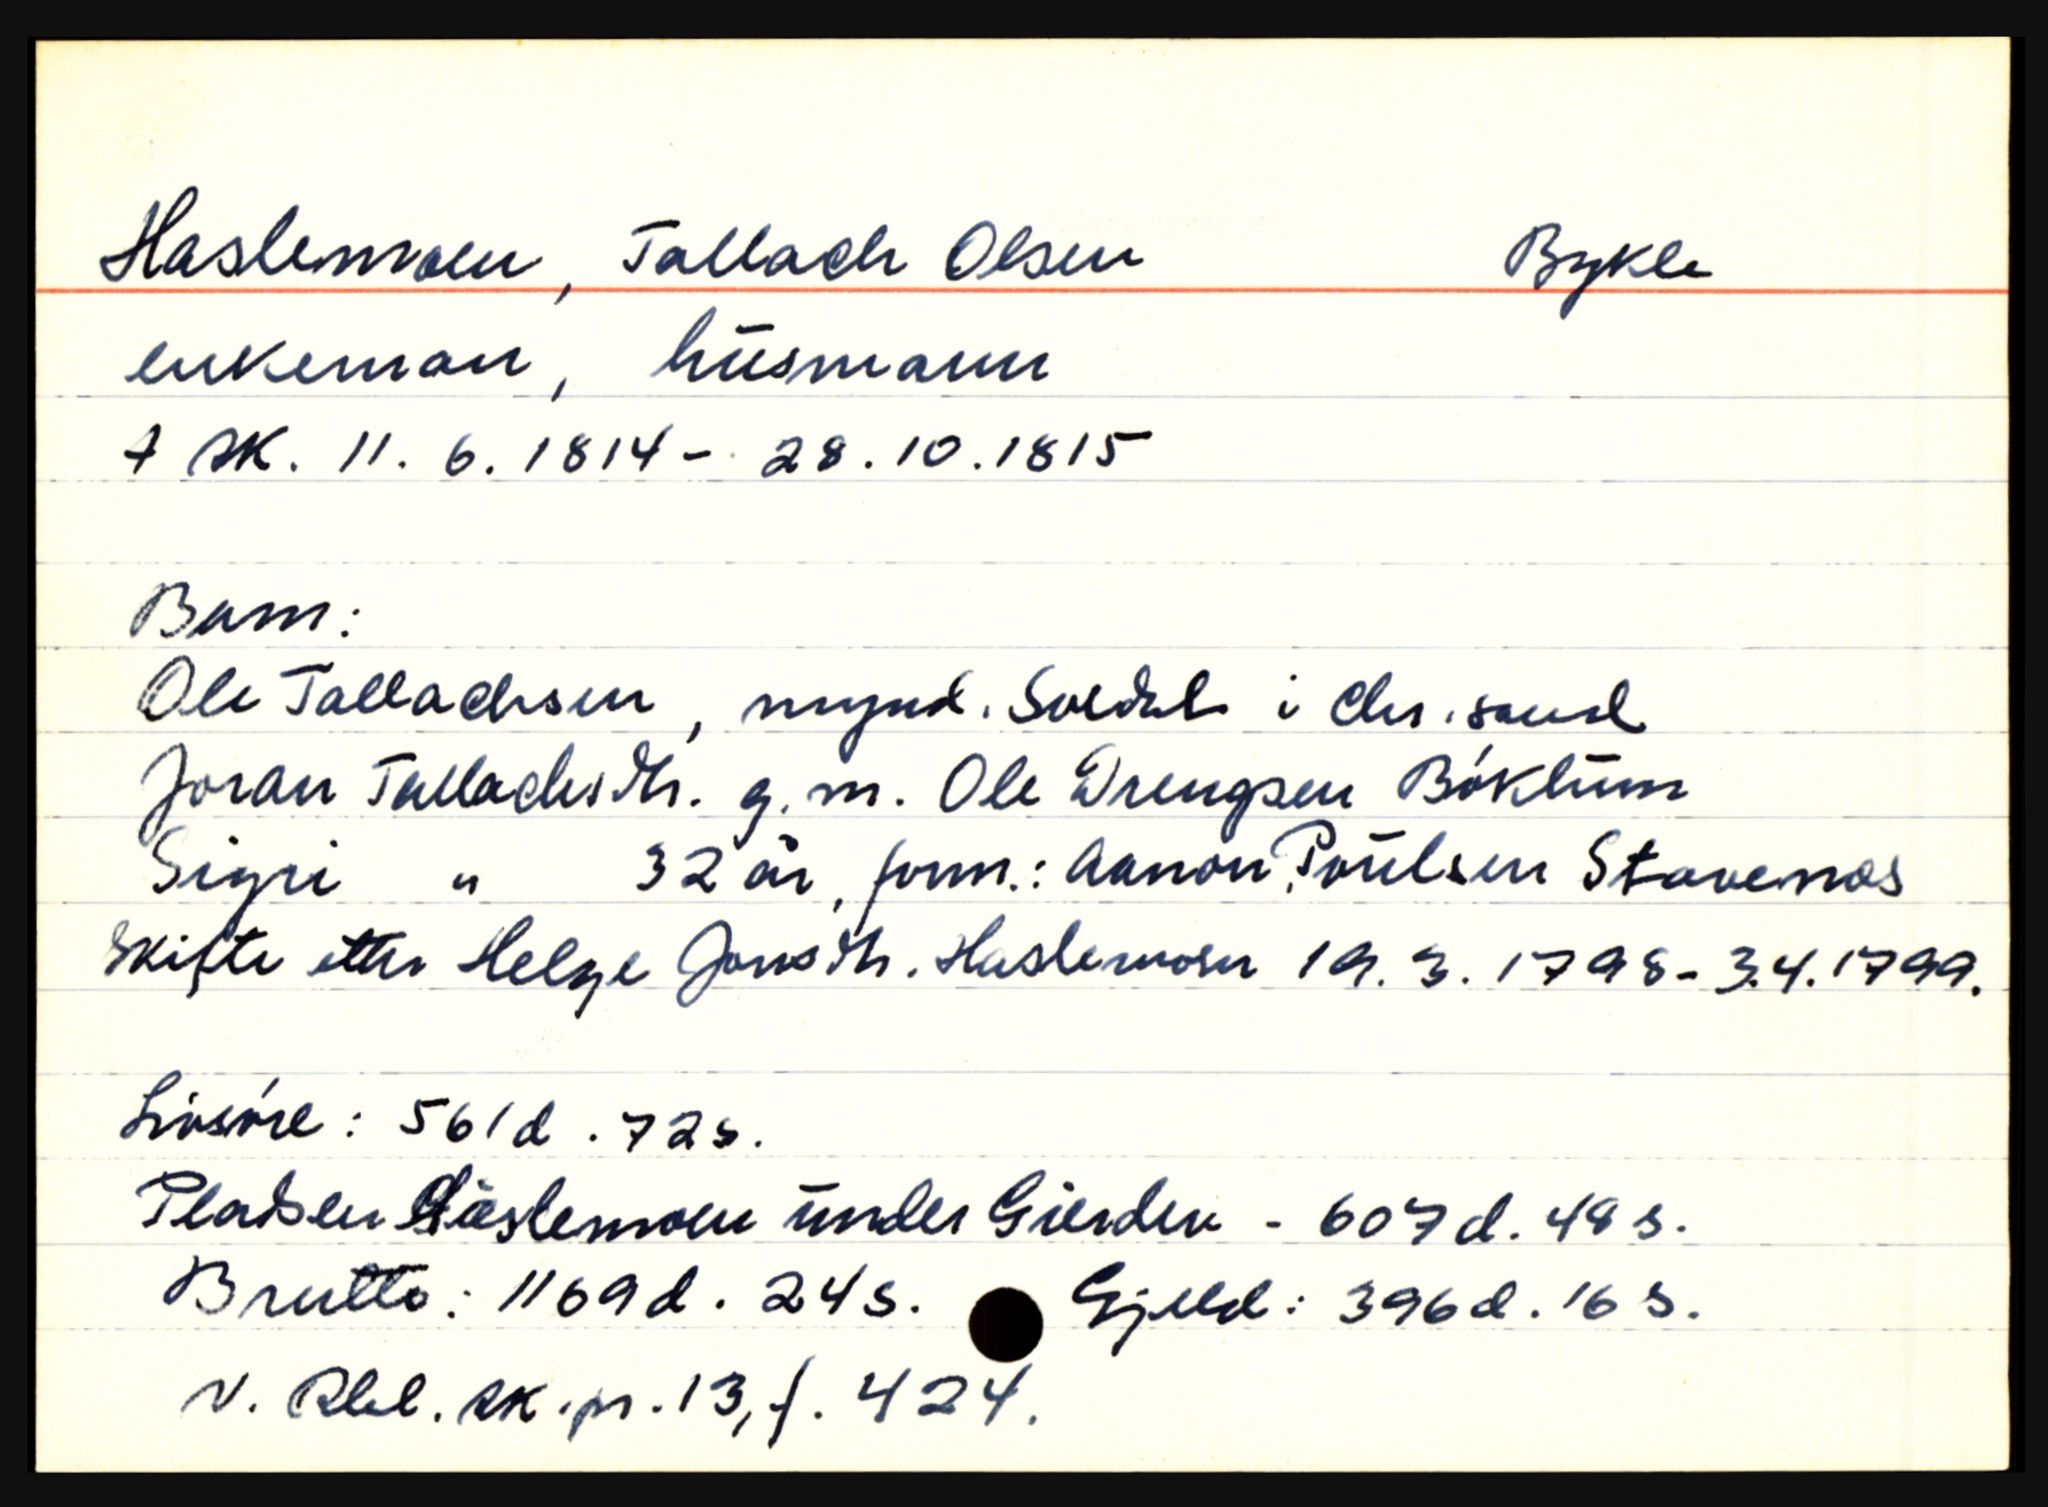 Haslemoen, Tallach Olsen Bykle
enkeman, husmann
† sk. 11. 6. 1814 - 28. 10. 1815
Barn:
Ole Tallachsen, mynd. Soldat i Chr.sand
Joran Tallachsdtr. g. m. Ole Drengsen Bóklum
Sigri " 32 år, form.: Aanon Poulsen Stavenæs
Skifte etter Helge Jonsdtr. Haslemoen 19. 3. 1798 - 3.4. 1799.
Lösöre: 561 d. 72 s.
Pladsen Haslemoen under Gierden - 607 d. 48 s.
Brutto: 1169 d. 24 s. Gjeld: 396 d. 16 s.
N. Rbl. sk. pr. 13, f. 424.